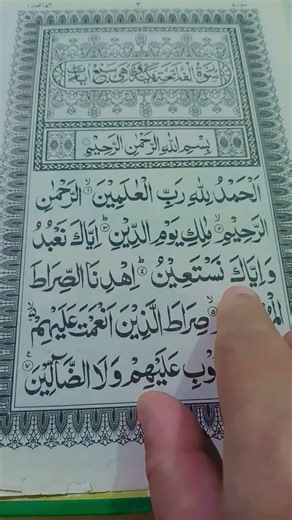 سورة ٢ الفاتحة ١
سُوْرَةُ الْفَاتِحَةِ مَكِّيَّةٌ وَّهِيَ سَبْعُ اٰيَاتٍ
بِسْمِ اللهِ الرَّحْمٰنِ الرَّحِيْمِ
اَلْحَمْدُ لِلهِ رَبِّ الْعٰلَمِيْنَ ۙ﴿۱﴾ الرَّحْمٰنِ
الرَّحِيْمِ ۙ﴿۲﴾ مٰلِكِ يَوْمِ الدِّيْنِ ؕ﴿۳﴾ اِيَّاكَ نَعْبُدُ
وَاِيَّاكَ نَسْتَعِيْنُ ؕ﴿۴﴾ اِهْدِنَا الصِّرَاطَ
صِرَاطَ الَّذِيْنَ اَنْعَمْتَ عَلَيْهِمْ ۙ۬﴿۶﴾
عَلَيْهِمْ وَلَا الضَّآلِّيْنَ ﴿۷﴾